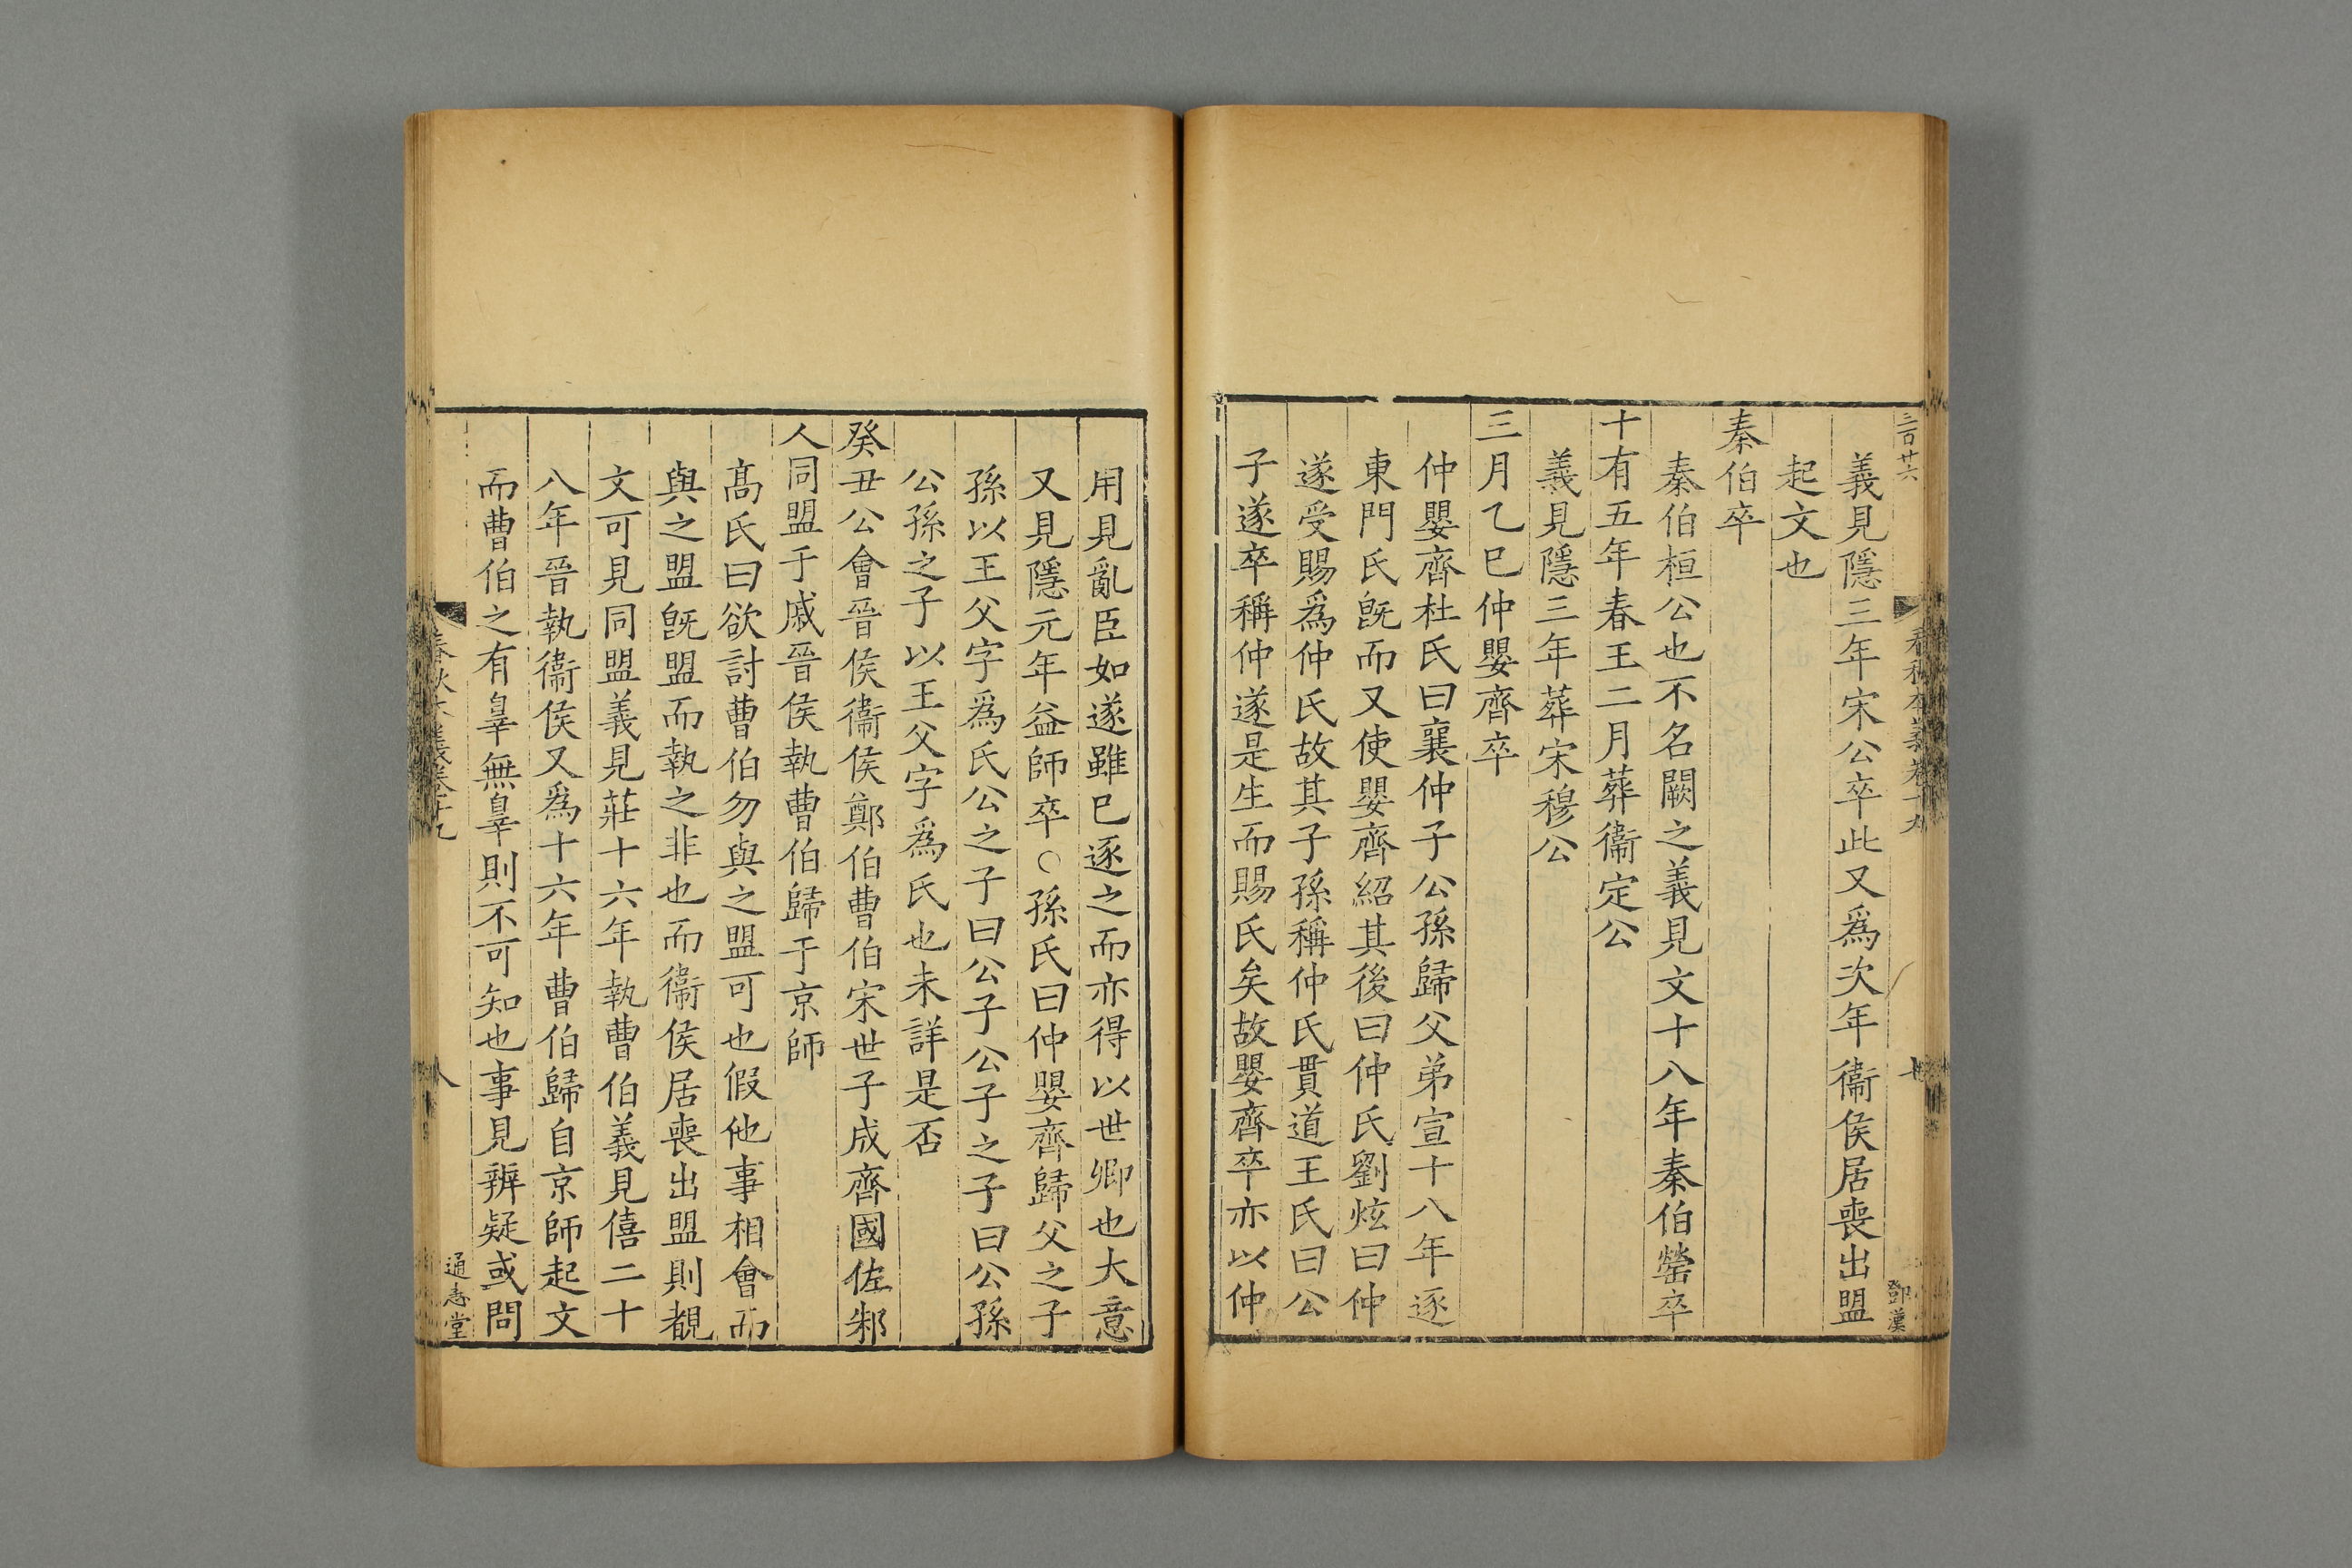 三百廿六
鄧漢
義見隱三年宋公卒此又爲次年衞侯居喪出盟
起文也
秦伯卒
秦伯桓公也不名闕之義見文十八年秦伯罃卒
十有五年春王二月葬衞定公
義見隱三年葬宋穆公
三月乙巳仲嬰齊卒
仲嬰齊杜氏曰襄仲子公孫歸父弟宣十八年逐
東門氏旣而又使嬰齊紹其後曰仲氏劉炫曰仲
遂受賜爲仲氏故其子孫稱仲氏貫道王氏曰公
子遂卒稱仲遂是生而賜氏矣故嬰齊卒亦以仲
用見亂臣如遂雖已逐之而亦得以世卿也大意
又見隱元年益師卒○孫氏曰仲嬰齊歸父之子
孫以王父字爲氏公之子曰公子公子之子曰公孫
公孫之子以王父字爲氏也未詳是否
癸丑公會晉侯衞侯鄭伯曹伯宋世子成齊國佐邾
人同盟于戚晉侯執曹伯歸于京師
髙氏曰欲討曹伯勿與之盟可也假他事相會而
與之盟旣盟而執之非也而衞侯居喪出盟則覩
文可見同盟義見莊十六年執曹伯義見僖二十
八年晉執衞侯又爲十六年曹伯歸自京師起文
而曹伯之有辠無辠則不可知也事見辨疑或問
春秋本義卷十九
八
通志堂